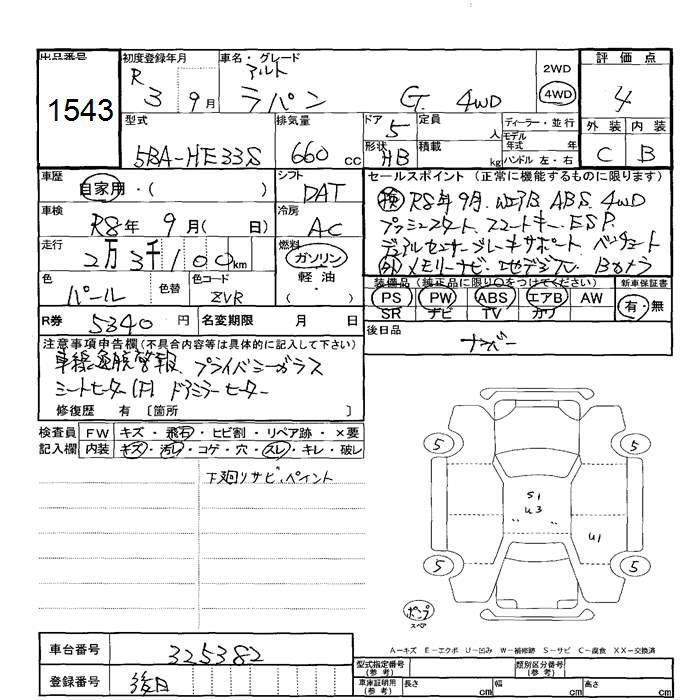 出品番号
1543
初度登録年月
R 3 9月
車名・グレード
アルト
ラパン G 4WD
2WD
4WD
評価点
4
外装 内装
C B
型式
5BA-HE33S
排気量
660 cc
ドア
5
形状
HB
定員
人
積載
kg
ディーラー・並行
モデル
年式 年
ハンドル 左・右
車歴
自家用・( )
シフト
DAT
車検
R8年 9月( 日)
冷房
AC
走行
2万3千100km
燃料
ガソリン
軽油
・
( )
色
パール
色替
色コード
ZVR
R券 5340 円
名変期限 月 日
セールスポイント (正常に機能するものに限ります)
検 R8年9月. WエアB ABS. 4WD
プッシュスタート スマートキー. ESP.
デュアルセンサーブレーキサポート ベンチシート
外メモリーナビ・地デジTV. Bカメラ
装備品 (純正品に限り○をつけてください)
PS PW ABS エアB AW
SR ナビ TV カワ
新車保証書
有・無
後日品
ナンバー
注意事項申告欄(不具合内容等は具体的に記入して下さい)
車線逸脱警報. プライバシーガラス
シートヒーター(F) ドアミラーヒーター
修復歴 有 〔箇所 〕
検査員
記入欄
FW キズ・飛石・ヒビ割・リペア跡・×要
内装 キズ・汚レ・コゲ・穴・スレ・キレ・破レ
下廻りサビ・ペイント
5 5
S1
U3
U1
5 5
ポンプ
スペア
A−キズ E−エクボ U−凹み W−補修跡 S−サビ C−腐食 XX−交換済
車台番号 325382
登録番号 後日
型式指定番号
(参考)
類別区分番号
(参考)
車庫証明用
(参考)
長さ cm 幅 cm 高さ cm